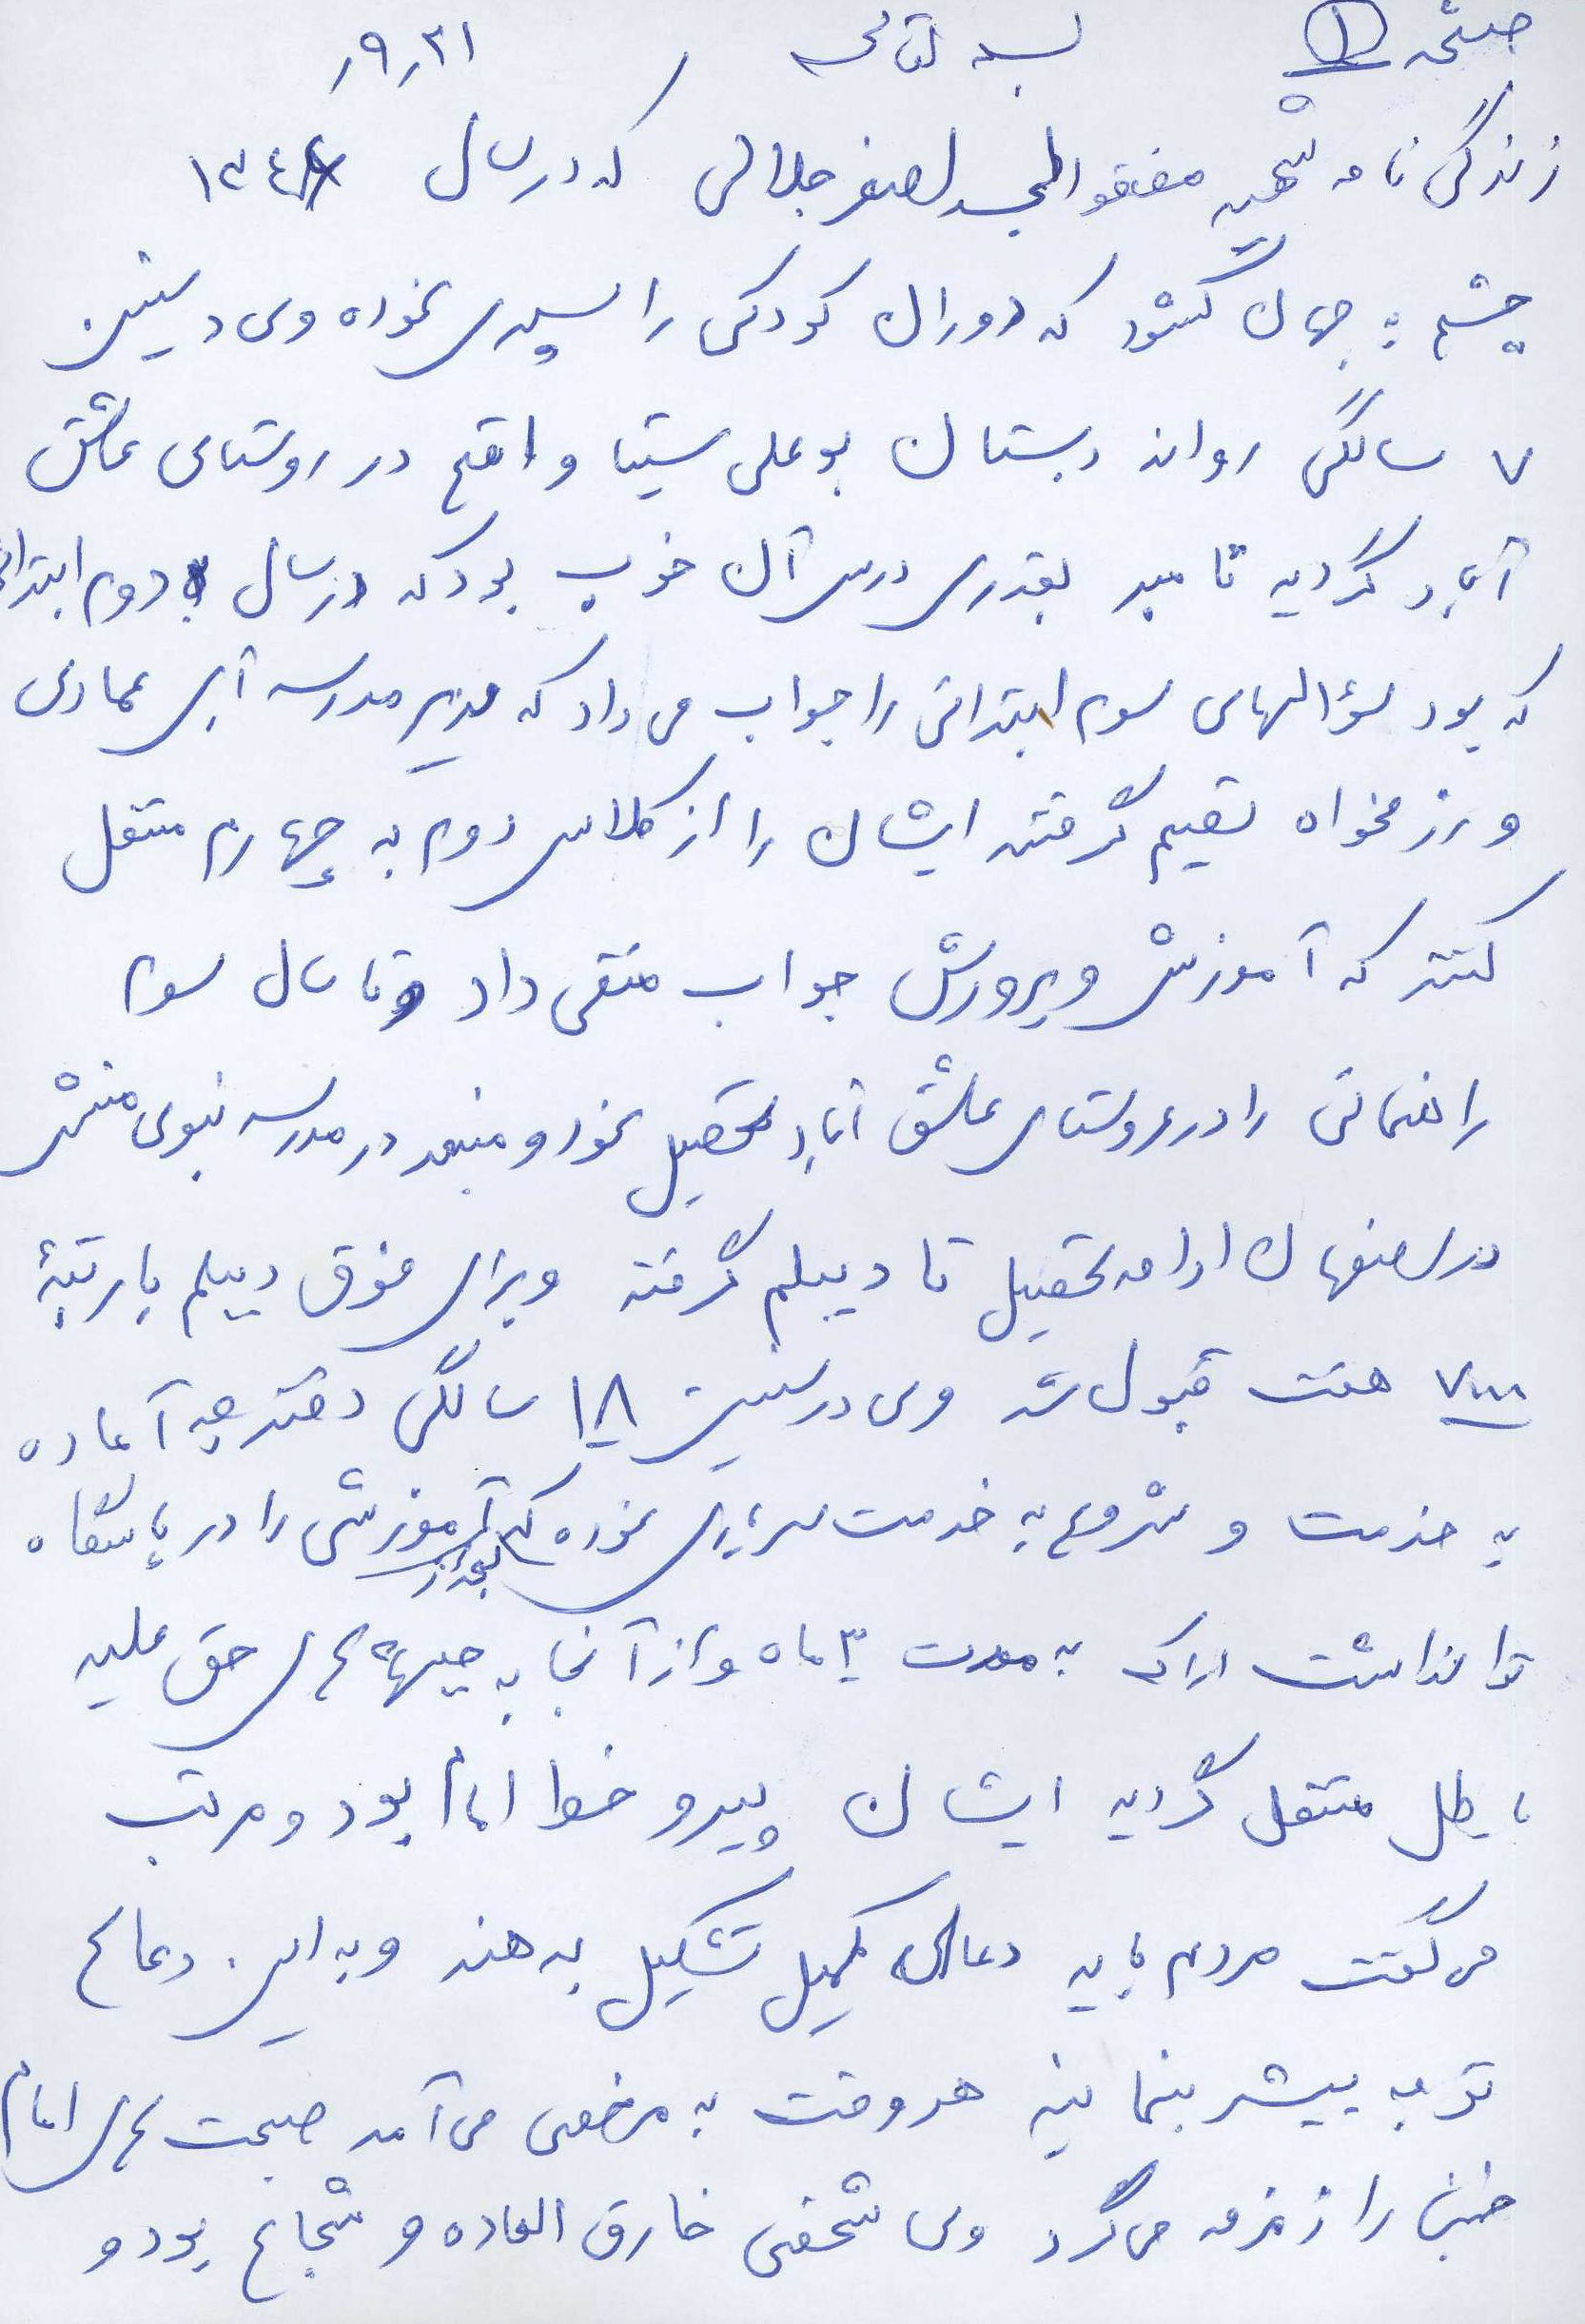 صفحه ۱ بسمه تعالی ۹٫۲۱٫
زندگی نامه شهید مفقود الجسد اصغر جلالی که در سال ۱۳۴۸
چشم به جهان گشود که دوران کودکی را سپری نموده وی در سنین
۷ سالگی روانه دبستان بوعلی سینا واقع در روستای عاشق
آباد گردید بقدری درس آن خوب بود که در سال دوم ابتدائی
که بود سؤالهای سوم ابتدائی را جواب می داد که مدیر مدرسه آقای عمادی
و رزمخواه تصمیم گرفتند ایشان را از کلاس دوم به چهارم منتقل
کنند که آموزش و پرورش جواب منفی داد و تا سال سوم
راهنمائی را در روستای عاشق آباد تحصیل نمود و منبعد در مدرسه نبوی منش
در اصفهان ادامه تحصیل تا دیپلم گرفته و برای فوق دیپلم با رتبهٔ
۷۰۰۰ هفت قبول شد وی در سنین ۱۸ سالگی دفترچه آماده
به خدمت و شروع به خدمت سربازی نموده که آموزشی را در پادگان
اراک به مدت ۳ ماه و از آنجا به جبهه های حق علیه
باطل منتقل گردید ایشان پیرو خط امام بود و مرتب
می گفت مردم باید دعای کمیل تشکیل بدهند و به این دعاها
توجه بیشتر بنمایند هر وقت به مرخصی می آمد صحبت های امام
خمینی را زمزمه می کرد وی شخصی خارق العاده و شجاع بود و